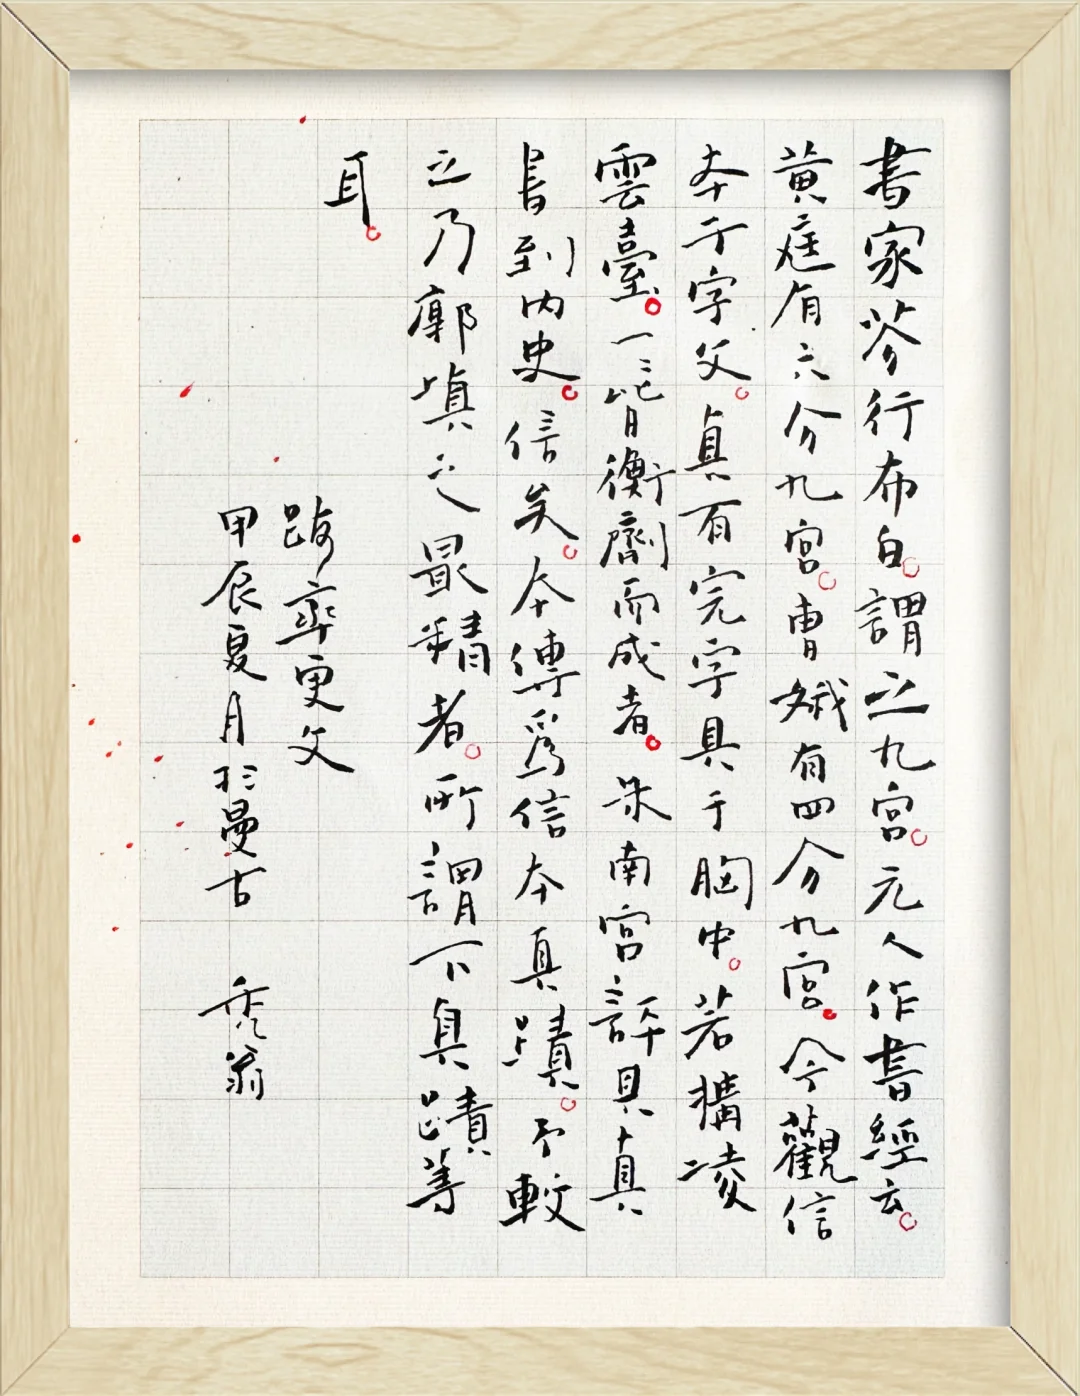 書家茖行布白謂之九宮元人作書經云
黃庭有六分九宮曹娥有四分九宮今觀信
本千字文真有完字具于胸中若構凌
雲臺一一皆衡劑而成者米南宮評其真
書到內史信矣本傳為信本真蹟予較
之乃廓填之最精者所謂下真蹟等
耳
跋率更文
甲辰夏月於曼古 禿翁